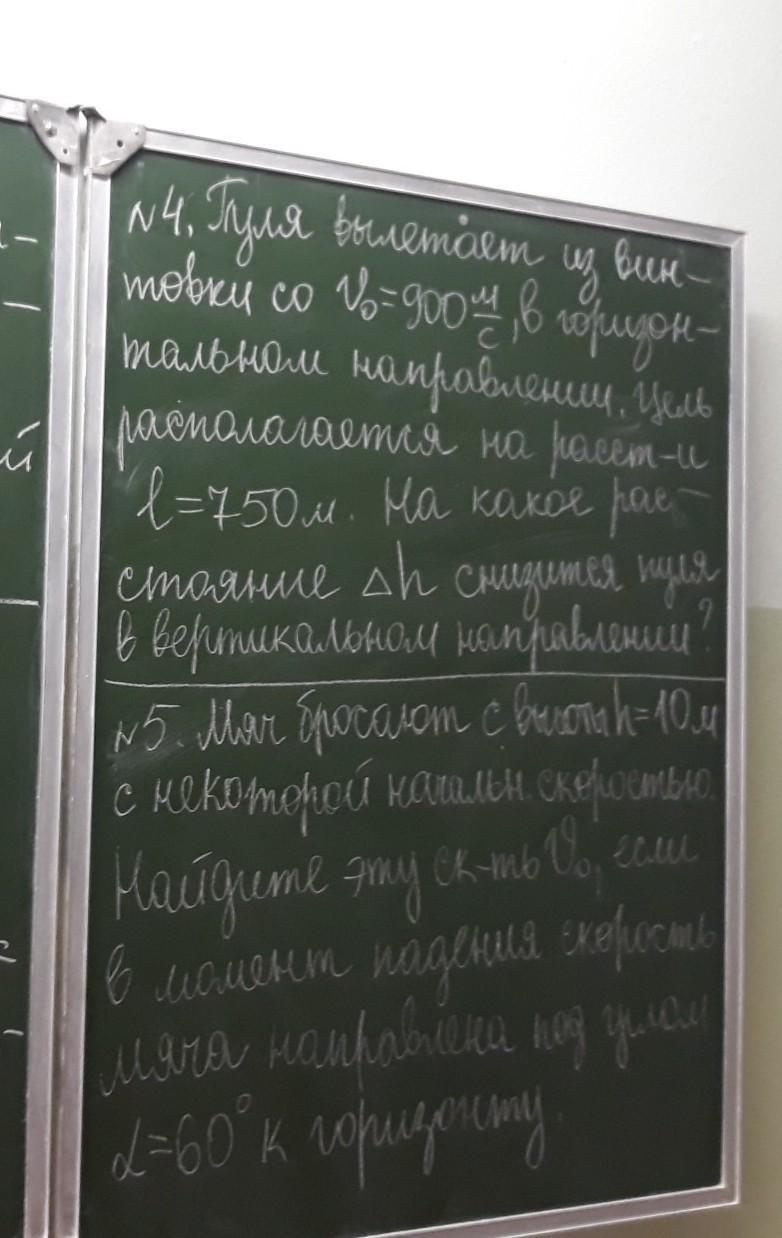 а-
-
ий
№4. Пуля вылетает из вин-
товки со V₀=900 м/с, в горизон-
тальном направлении. Цель
располагается на расст-и
l=750м. На какое рас-
стояние Δh снизится пуля
в вертикальном направлении?
№5. Мяч бросают с высоты h=10м
с некоторой начальн. скоростью.
Найдите эту ск-ть V₀, если
в момент падения скорость
мяча направлена под углом
α=60° к горизонту.